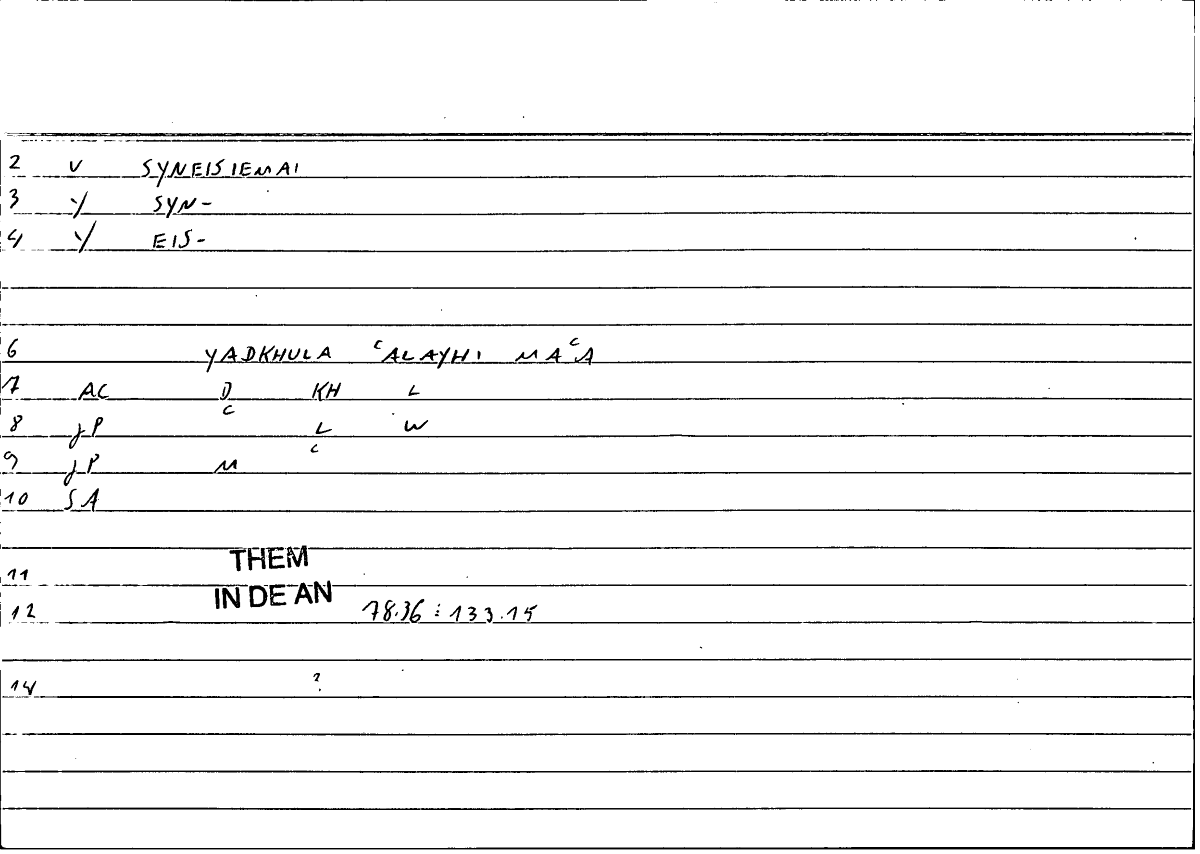 2 V SYNEISIEMAI
3 Y SYN-
4 Y EIS-
6 YADKHULA ᶜALAYHI MAᶜA
7 AC D KH L
8 JP ᶜ L W
9 JP M ᶜ
10 SA
11 THEM
12 IN DE AN 78.36 : 133.15
14 ?